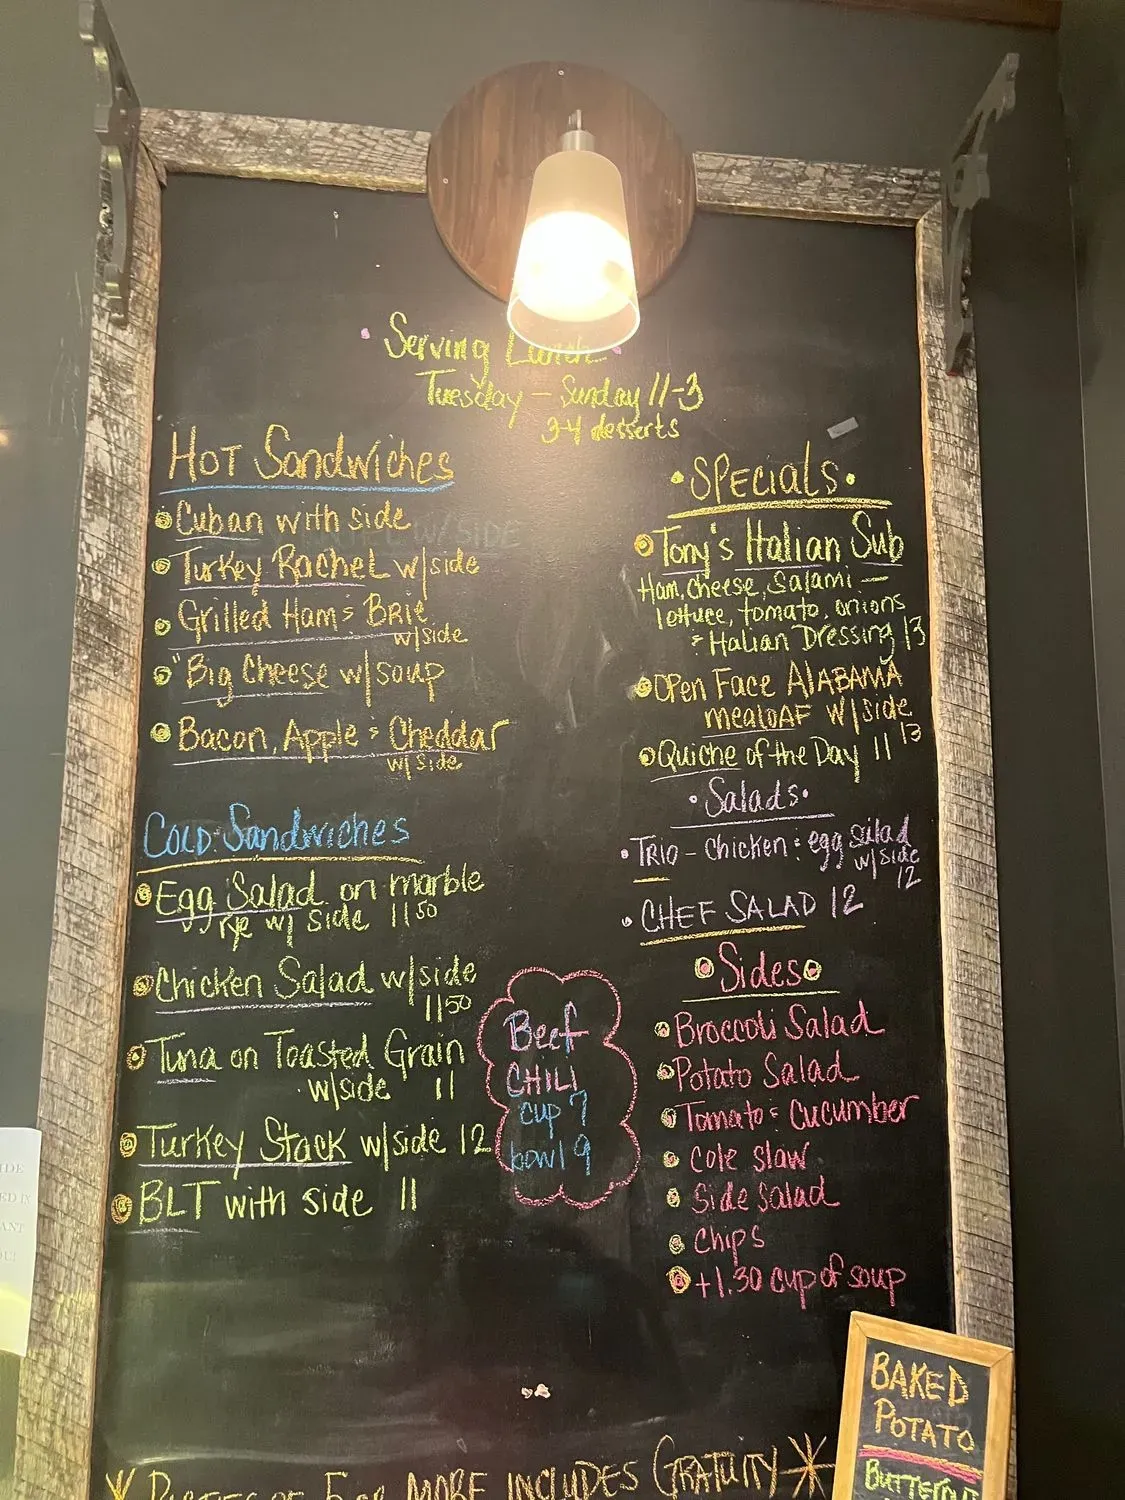 Serving Lunch
Tuesday - Sunday 11-3
3-4 desserts
HOT Sandwiches
Cuban with side
W/SIDE
Turkey Rachel w/side
Grilled Ham & BRIE
w/side
"Big Cheese w/soup
Bacon, Apple & Cheddar
w/side
COLD Sandwiches
Egg Salad on marble
rye w/ side 11 50
Chicken Salad w/side
11 50
Tuna on Toasted Grain
w/side 11
Turkey Stack w/side 12
BLT with side 11
Beef
CHILI
cup 7
bowl 9
SPECIALS
Tony's Italian Sub
Ham, cheese, Salami —
lettuce, tomato, onions
& Italian Dressing 13
OPEN FACE ALABAMA
mealoAF w/side
13
Quiche of the Day 11
Salads
TRIO - chicken & egg salad
w/side
12
CHEF SALAD 12
Sides
Broccoli Salad
Potato Salad
Tomato & Cucumber
Cole slaw
Side Salad
Chips
+1.30 cup of soup
PARTIES OF 5 OR MORE INCLUDES GRATUITY
BAKED
POTATO